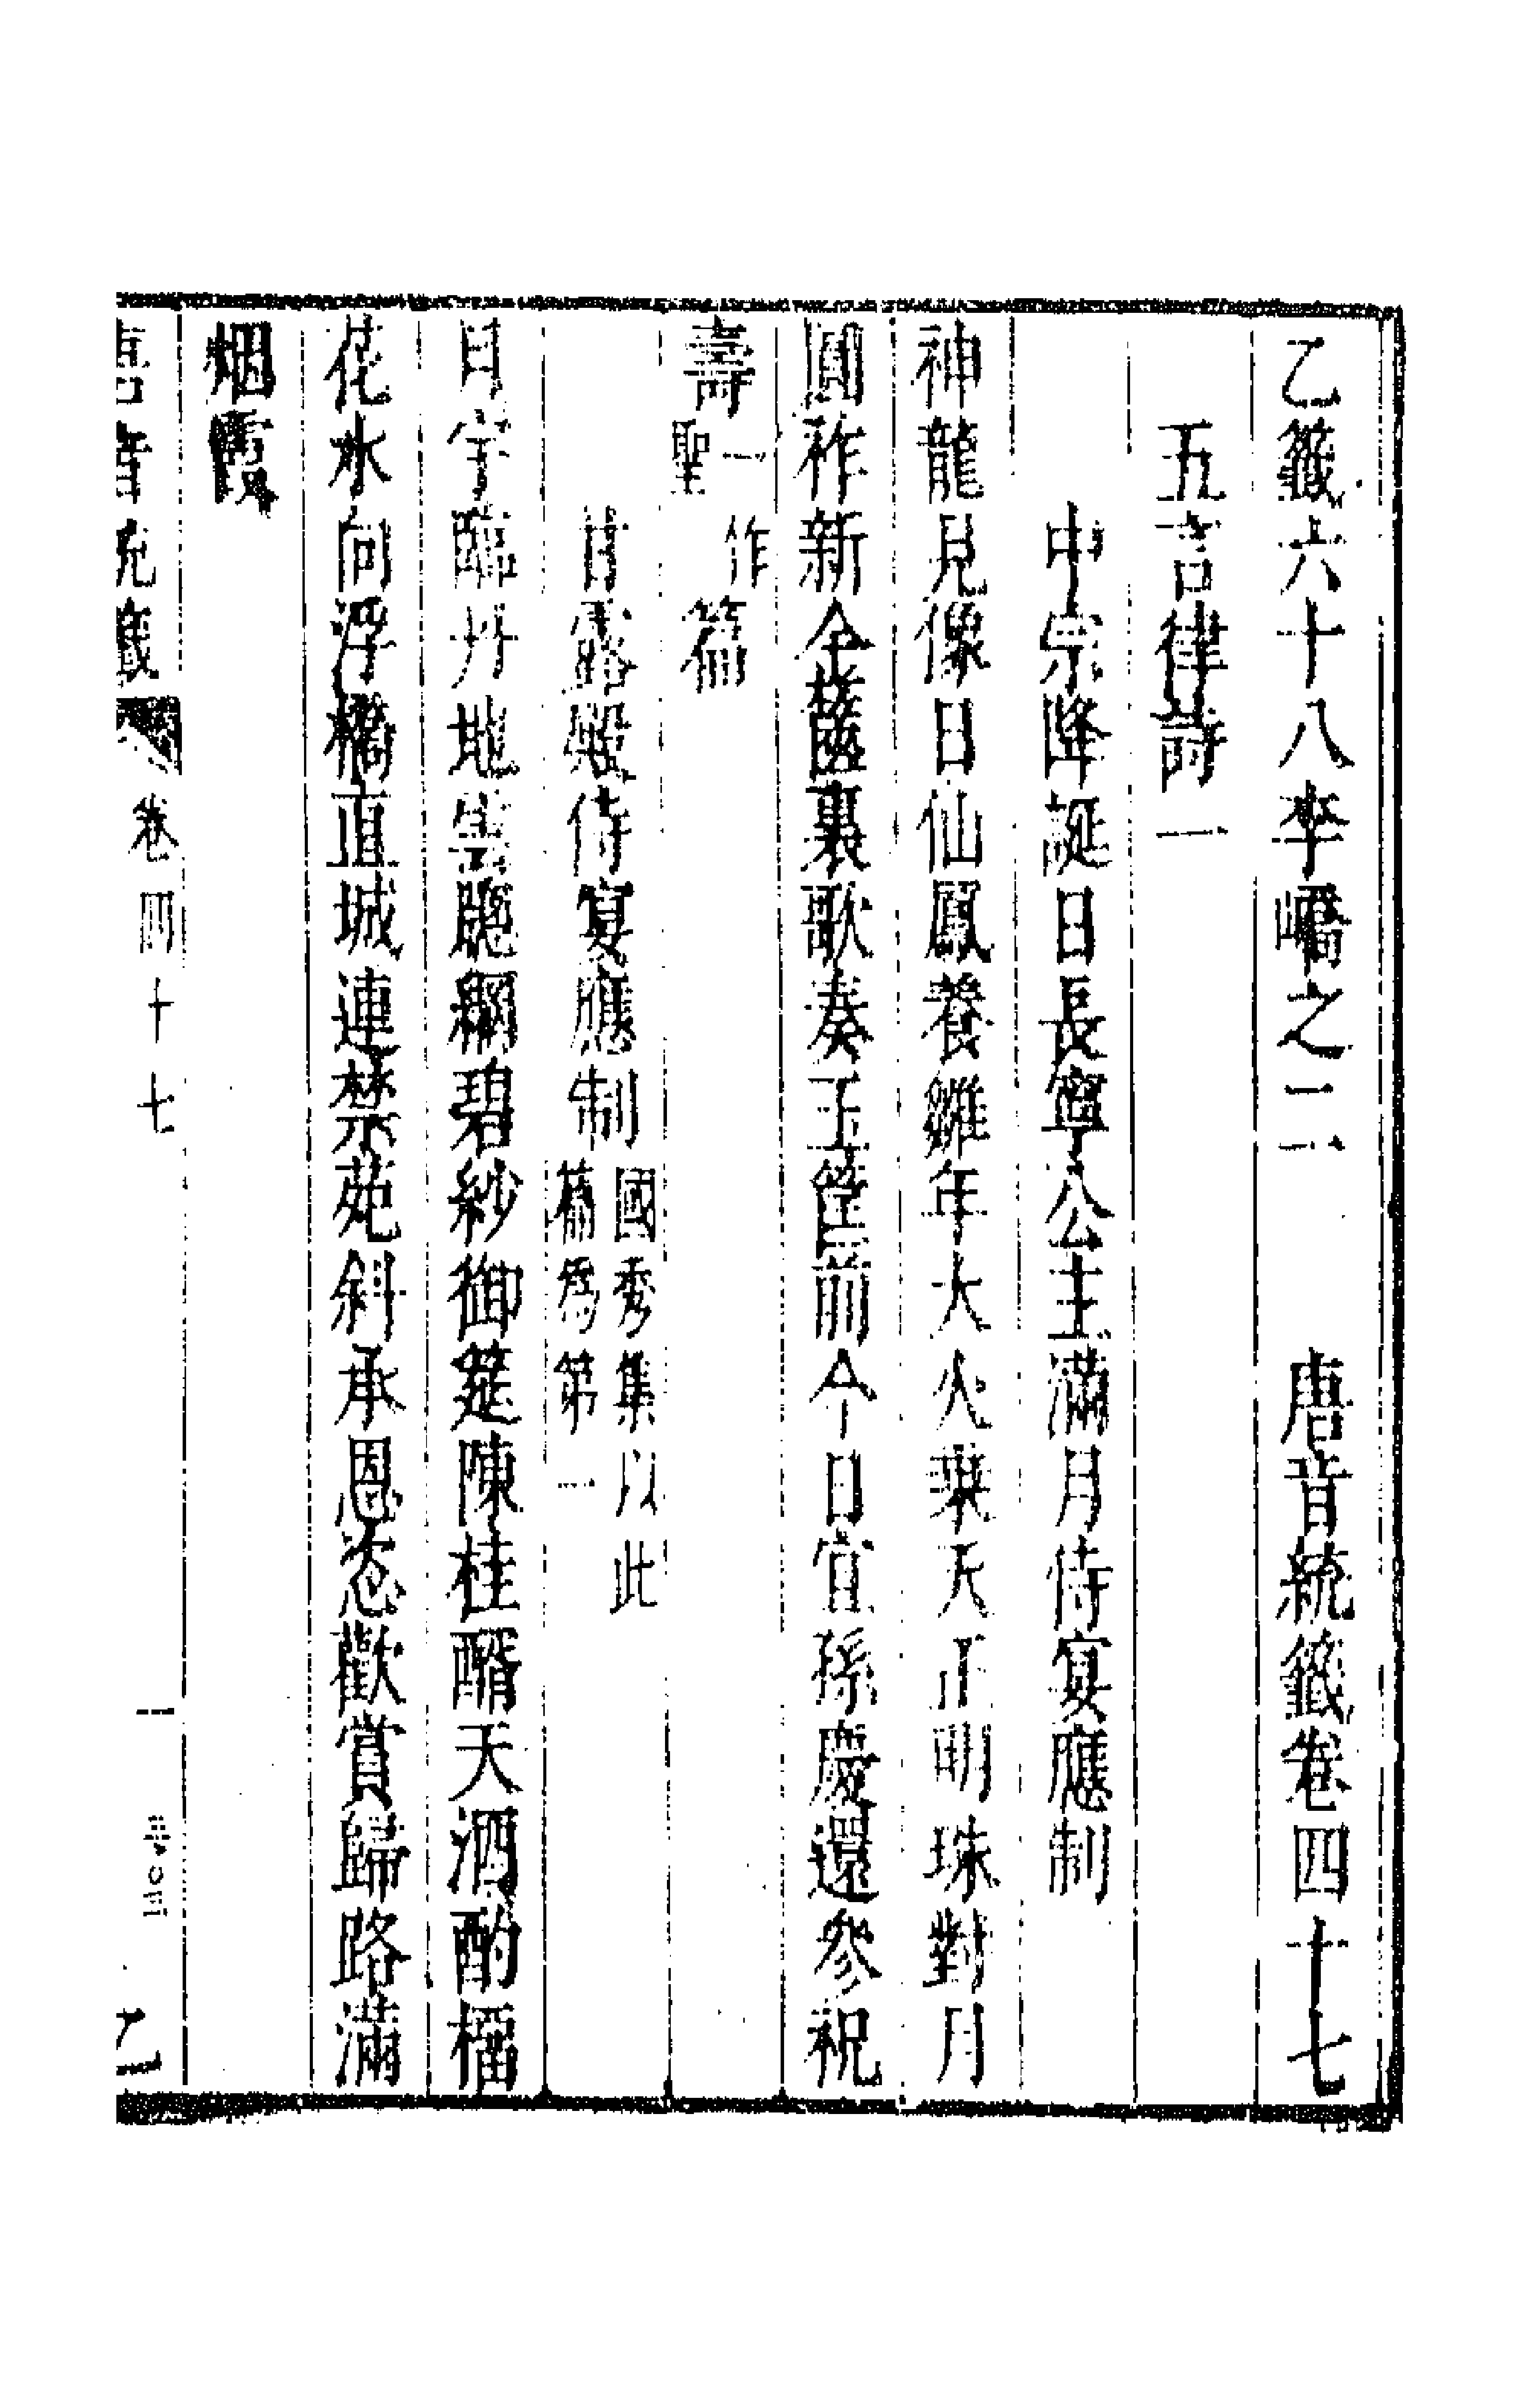 乙籤六十八李嶠之二　唐音統籤卷四十七
五言律詩一
中宗降誕日長寧公主滿月侍宴應制
神龍見像日仙鳳養雛年大火乘天正明珠對月
圓祚新金篋裏歌奏玉筐前今日宜孫慶還參祝
壽一作聖篇
甘露殿侍宴應制國秀集以此篇爲第一
月宇臨丹地雲牕網碧紗御筵陳桂醑天酒酌榴
花水向浮橋直城連禁苑斜承恩恣歡賞歸路滿
烟霞
唐音統籤 卷四十七 一 乙